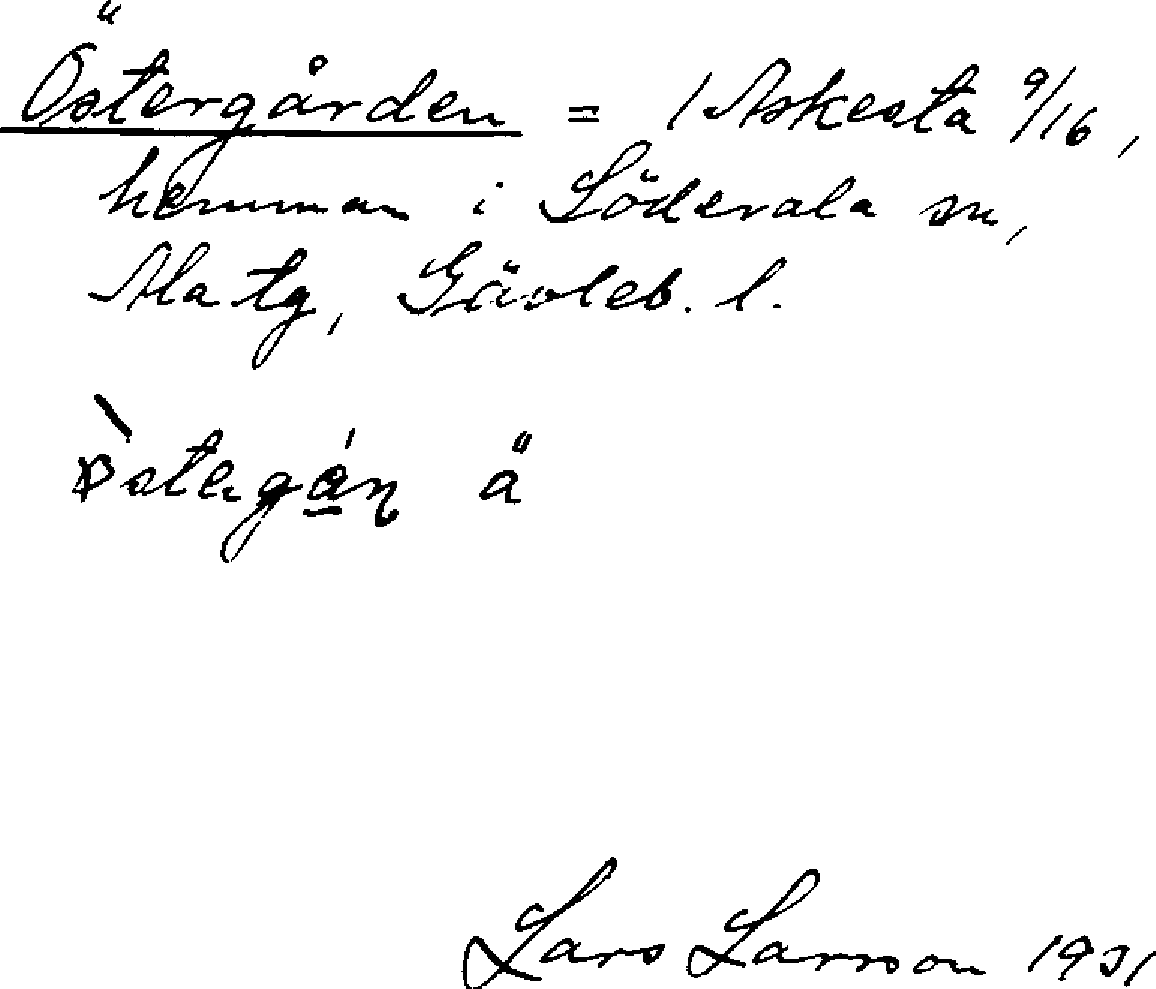 Östergården = 1 Askesta 9/16,
hemman i Söderala sn,
Ala tg, Gävleb. l.
ä
Lars Larsson 1931